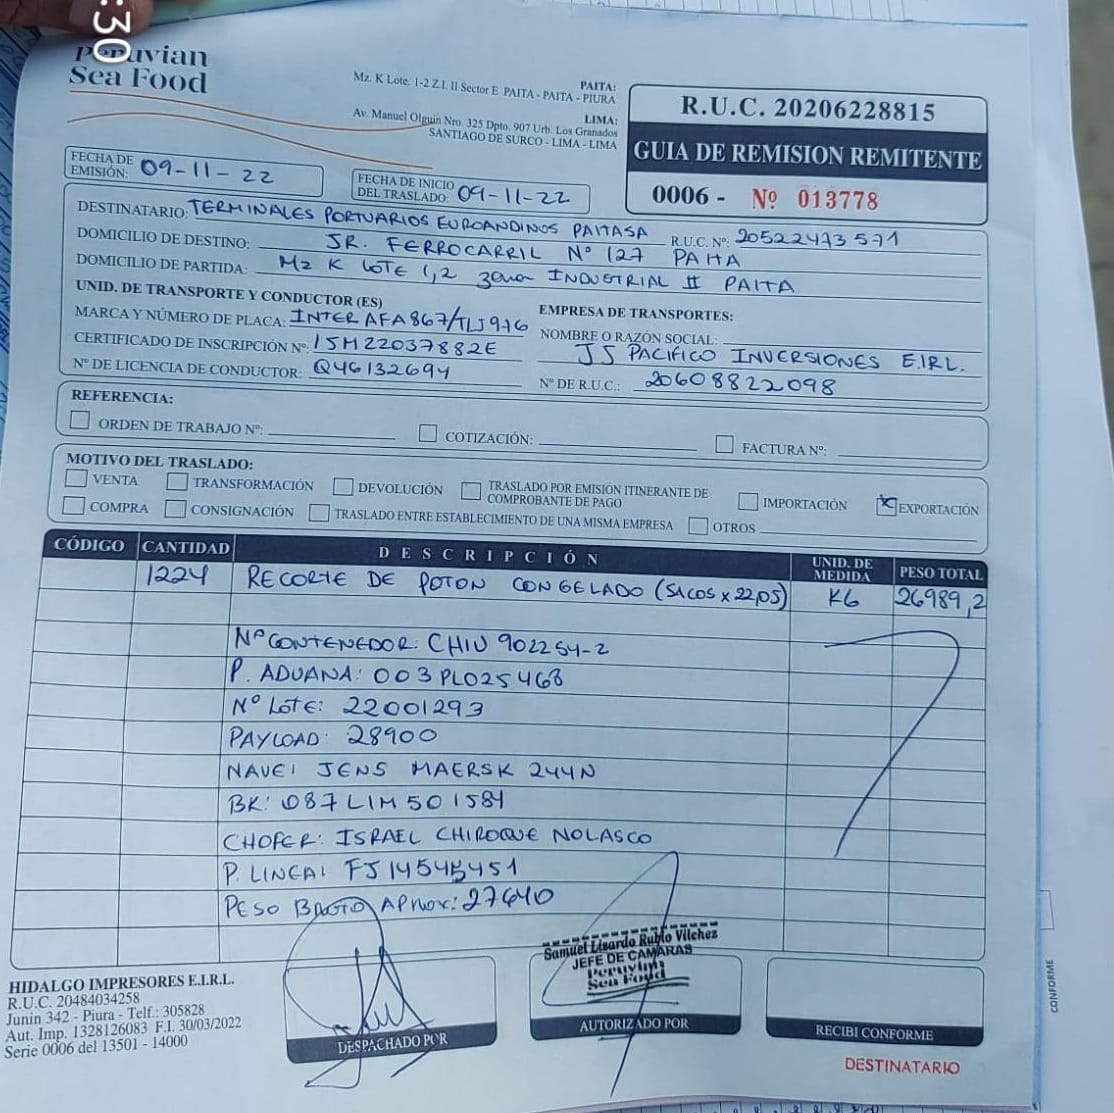 :30
Peruvian
Sea Food
PAITA:
Mz. K Lote. 1-2 Z.I. II Sector E PAITA - PAITA - PIURA
LIMA:
Av. Manuel Olguin Nro. 325 Dpto. 907 Urb. Los Granados
SANTIAGO DE SURCO - LIMA - LIMA
R.U.C. 20206228815
GUIA DE REMISION REMITENTE
0006 - Nº 013778
FECHA DE EMISIÓN: 09-11-22
FECHA DE INICIO DEL TRASLADO: 09-11-22
DESTINATARIO: TERMINALES PORTUARIOS EUROANDINOS PAITASA R.U.C. Nº: 20522473571
DOMICILIO DE DESTINO: JR. FERROCARRIL Nº 127 PAITA
DOMICILIO DE PARTIDA: Mz K LOTE 1,2 zona INDUSTRIAL II PAITA
UNID. DE TRANSPORTE Y CONDUCTOR (ES)
MARCA Y NÚMERO DE PLACA: INTER AFA867/TLJ976
CERTIFICADO DE INSCRIPCIÓN Nº: 15M22037882E
Nº DE LICENCIA DE CONDUCTOR: Q46132694
EMPRESA DE TRANSPORTES:
NOMBRE O RAZÓN SOCIAL:
JS PACIFICO INVERSIONES E.IRL.
Nº DE R.U.C.: 20608822098
REFERENCIA:
ORDEN DE TRABAJO Nº: COTIZACIÓN: FACTURA Nº:
MOTIVO DEL TRASLADO:
VENTA TRANSFORMACIÓN DEVOLUCIÓN TRASLADO POR EMISIÓN ITINERANTE DE COMPROBANTE DE PAGO IMPORTACIÓN EXPORTACIÓN
COMPRA CONSIGNACIÓN TRASLADO ENTRE ESTABLECIMIENTO DE UNA MISMA EMPRESA OTROS
CÓDIGO CANTIDAD DESCRIPCIÓN UNID. DE MEDIDA PESO TOTAL
1224 RECORTE DE POTON CONGELADO (SACOS x 22,05) KG 26989,2
Nº CONTENEDOR: CHIU 902254-2
P. ADUANA: 003PL025468
Nº LOTE: 22001293
PAYLOAD: 28900
NAVE: JENS MAERSK 244N
BK: 087LIM501584
CHOFER: ISRAEL CHIROQUE NOLASCO
P. LINEA: FJ14545451
PESO BRUTO APROX: 27640
HIDALGO IMPRESORES E.I.R.L.
R.U.C. 20484034258
Junin 342 - Piura - Telf.: 305828
Aut. Imp. 1328126083 F.I. 30/03/2022
Serie 0006 del 13501 - 14000
DESPACHADO POR
Samuel Lizardo Rubio Vilchez
JEFE DE CAMARAS
Peruvian
Sea Food
AUTORIZADO POR
RECIBI CONFORME
DESTINATARIO
CONFORME